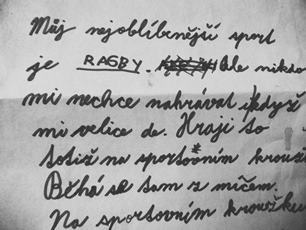 Můj nejoblíbenější sport
je RAGBY. Ale nikdo
mi nechce nahrávat ikdyž
mi velice de. Hraji to
totiž na sportovním krouž
Běhá se tam z míčem.
Na sportovním kroužku